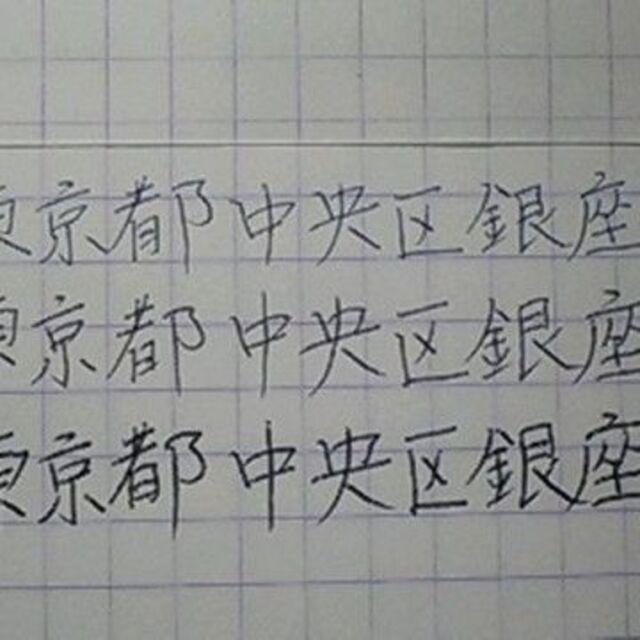 東京都中央区銀座
東京都中央区銀座
東京都中央区銀座